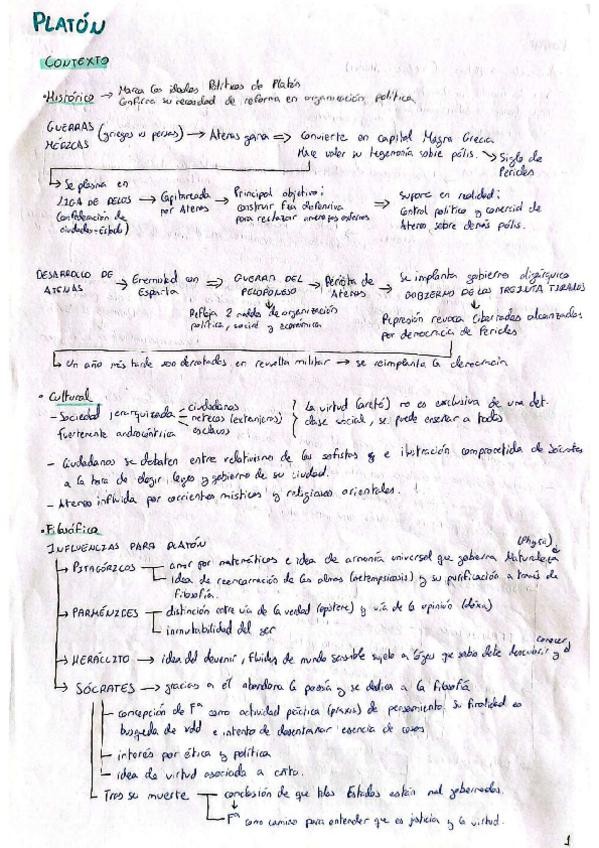 PLATÓN
CONTEXTO
• Histórico → Marca las ideas Políticas de Platón
Confirma su necesidad de reforma en organización política
GUERRAS MÉDICAS (griegos vs persas) → Atenas gana ⇒ Convierte en capital Magna Grecia
Hace valer su hegemonía sobre pólis. ↘ Siglo de Pericles
↳ Se plasma en LIGA DE DELOS (confederación de ciudades-Estado) → Capitaneada por Atenas → Principal objetivo: construir fza defensiva para rechazar amenazas externas ⇒ Supone en realidad: Control político y comercial de Atenas sobre demás pólis.
DESARROLLO DE ATENAS → Enemistad con Esparta ⇒ GUERRA DEL PELOPONESO → Pérdida de Atenas → Se implanta gobierno oligárquico
GOBIERNO DE LOS TREINTA TIRANOS
Refleja 2 modelos de organización política, social y económica
Represión revoca libertades alcanzadas por democracia de Pericles
↳ Un año más tarde son derrotados en revuelta militar → se reimplanta la democracia
• Cultural
- Sociedad jerarquizada fuertemente androcéntrica
ciudadanos
metecos (extranjeros)
esclavos
La virtud (areté) no es exclusiva de una det. clase social, se puede enseñar a todos
- Ciudadanos se debaten entre relativismo de los sofistas y e ilustración comprometida de Sócrates
a la hora de elegir leyes y gobierno de su ciudad.
- Atenas influida por corrientes místicas y religiosas orientales.
• Filosófico
INFLUENCIAS PARA PLATÓN
→ PITAGÓRICOS
amor por matemáticas e idea de armonía universal que gobierna Naturaleza (Physis)
idea de reencarnación de las almas (metempsicosis) y su purificación a través de
filosofía.
→ PARMÉNIDES
distinción entre vía de la verdad (episteme) y vía de la opinión (doxa)
inmutabilidad del ser
→ HERÁCLITO → idea del devenir, fluidez de mundo sensible sujeto a lógos que sabio debe descubrir y conocer
→ SÓCRATES → gracias a él abandona la poesía y se dedica a la filosofía
- concepción de Fª como actividad práctica (praxis) de pensamiento. Su finalidad es
busqeda de vdd e intento de desentrañar esencia de cosas
- interés por ética y política
- idea de virtud asociada a cnto.
- Tras su muerte
conclusión de que Estados están mal gobernados.
Fª como camino para entender que es justicia y la virtud.
1